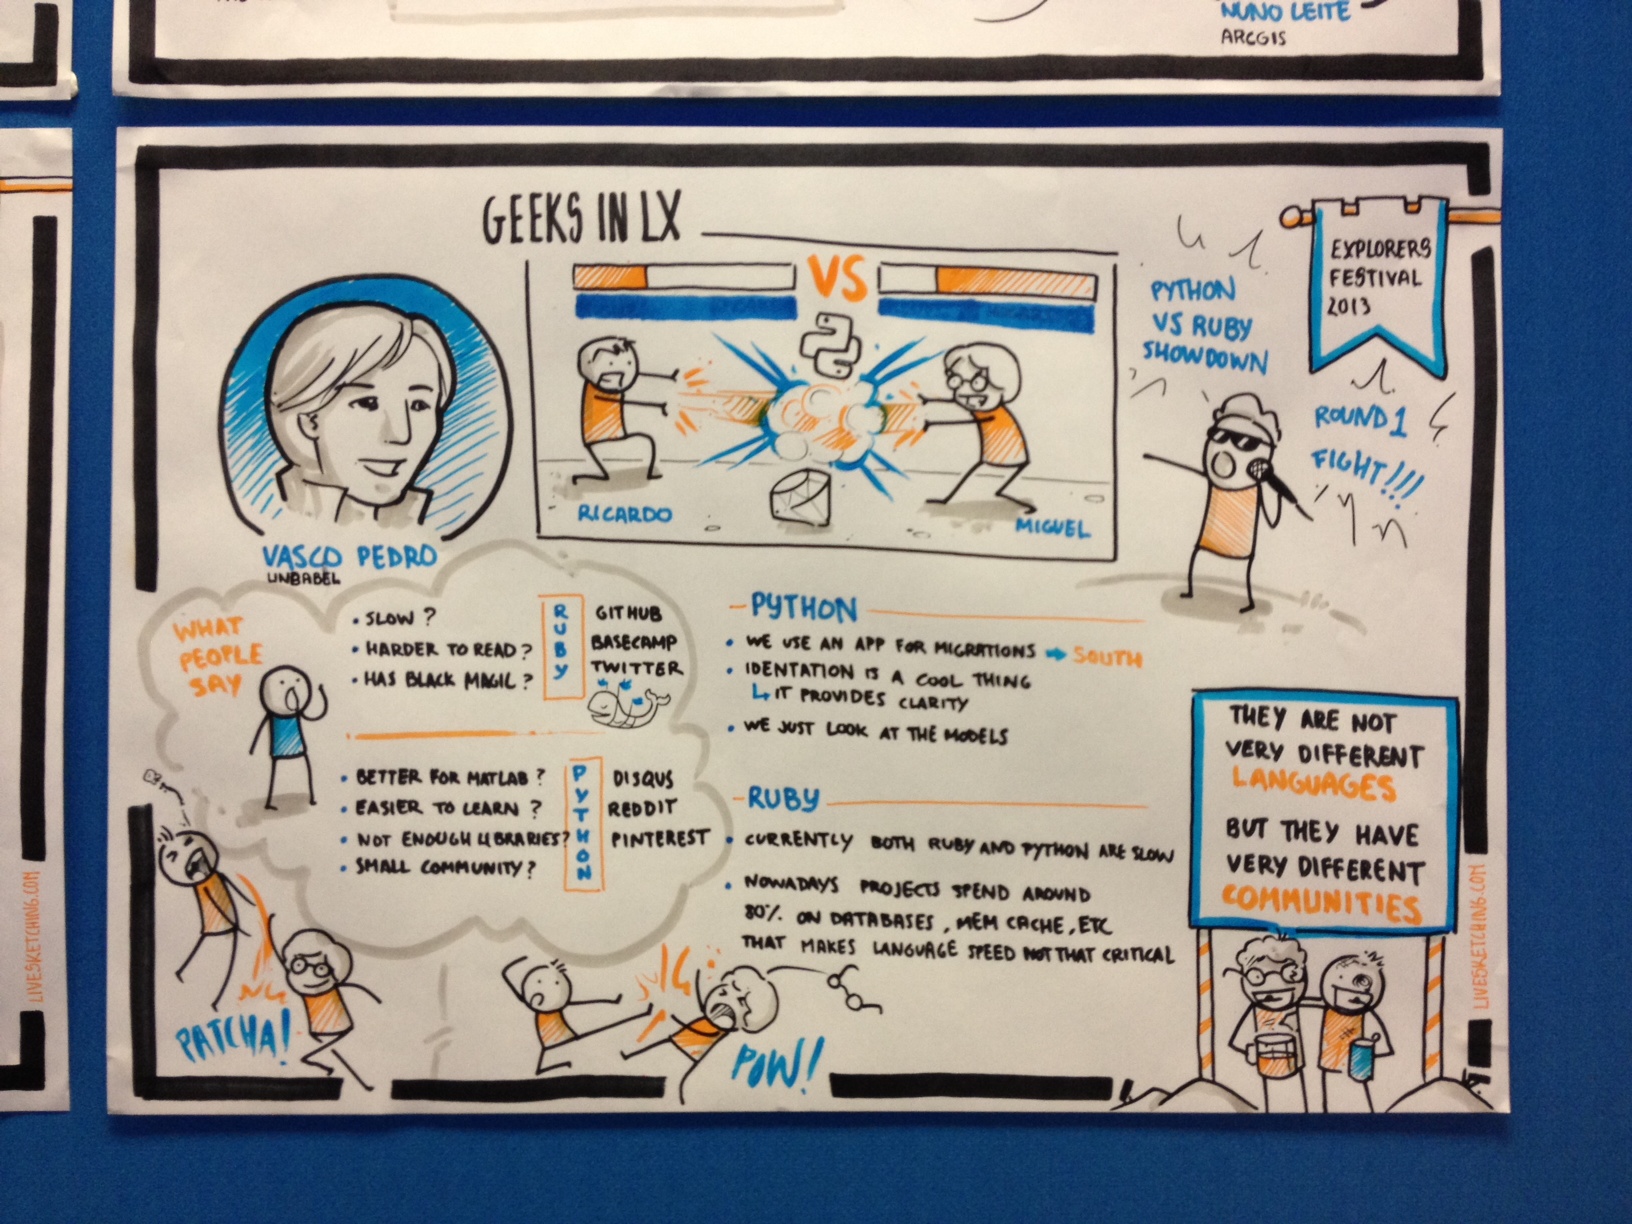 NUNO LEITE
ARCGIS
GEEKS IN LX
VS
EXPLORERS
FESTIVAL
2013
PYTHON
VS RUBY
SHOWDOWN
ROUND 1
FIGHT!!!
RICARDO
MIGUEL
VASCO PEDRO
UNBABEL
WHAT
PEOPLE
SAY
• SLOW?
• HARDER TO READ?
• HAS BLACK MAGIC?
RUBY
GITHUB
BASECAMP
TWITTER
• BETTER FOR MATLAB?
• EASIER TO LEARN?
• NOT ENOUGH LIBRARIES?
• SMALL COMMUNITY?
PYTHON
DISQUS
REDDIT
PINTEREST
PYTHON
• WE USE AN APP FOR MIGRATIONS → SOUTH
• IDENTATION IS A COOL THING
↳ IT PROVIDES CLARITY
• WE JUST LOOK AT THE MODELS
RUBY
• CURRENTLY BOTH RUBY AND PYTHON ARE SLOW
• NOWADAYS PROJECTS SPEND AROUND
80% ON DATABASES, MEM CACHE, ETC
THAT MAKES LANGUAGE SPEED NOT THAT CRITICAL
THEY ARE NOT
VERY DIFFERENT
LANGUAGES
BUT THEY HAVE
VERY DIFFERENT
COMMUNITIES
PATCHA!
POW!
LIVESKETCHING.COM
LIVESKETCHING.COM